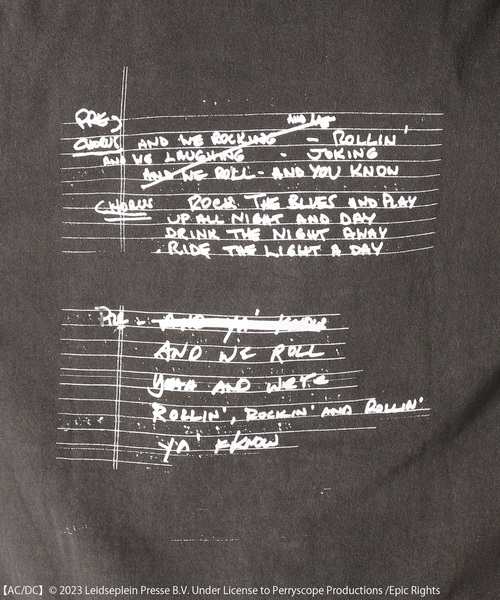 AND WE
PRE-
CHORUS AND WE ROCKING - ROLLIN'
AND WE LAUGHING - JOKING
AND WE ROLL - AND YOU KNOW
CHORUS ROCK THE BLUES AND PLAY
UP ALL NIGHT AND DAY
DRINK THE NIGHT AWAY
RIDE THE LIGHT A DAY
PRE - AND YA' KNOW
AND WE ROLL
YEAH AND WE'RE
ROLLIN', ROCKIN' AND ROLLIN'
YA' KNOW
【AC/DC】© 2023 Leidseplein Presse B.V. Under License to Perryscope Productions /Epic Rights